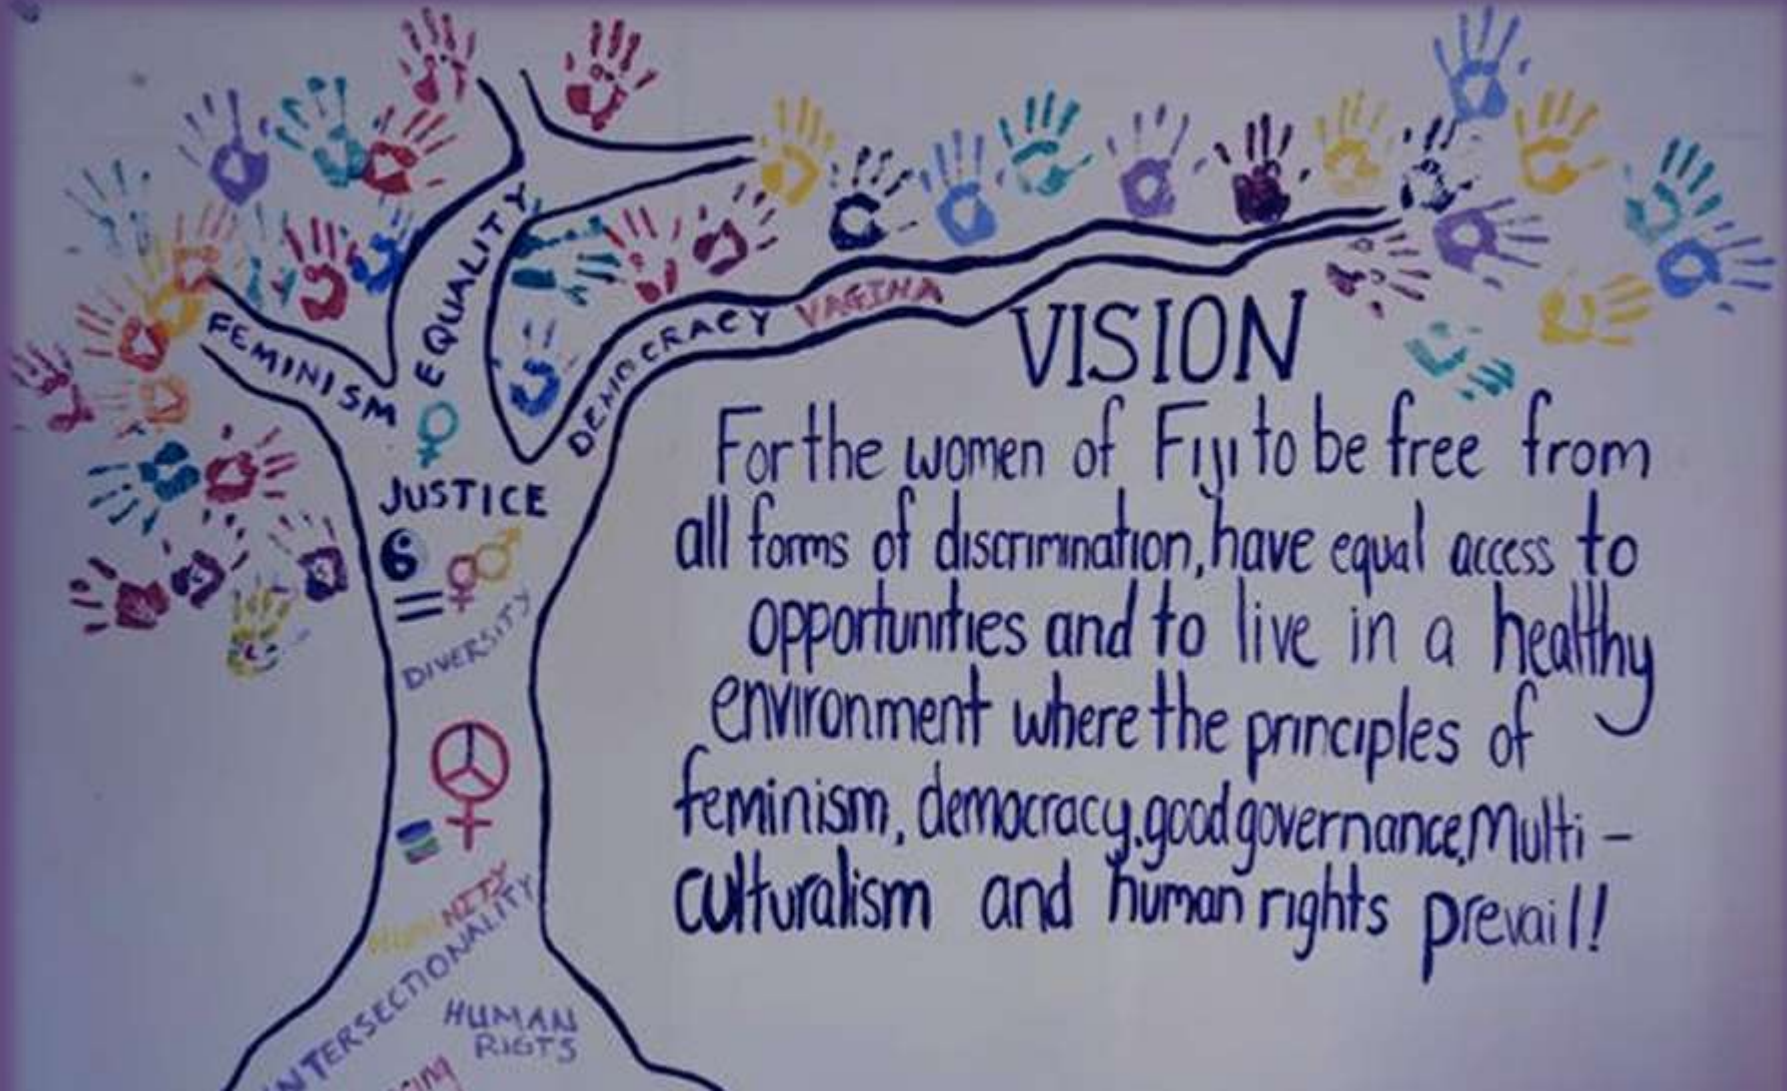 FEMINISM
EQUALITY
DEMOCRACY VAGINA
JUSTICE
DIVERSITY
HUMANITY
INTERSECTIONALITY
HUMAN
RIGTS
VISION
For the women of Fiji to be free from
all forms of discrimination, have equal access to
opportunities and to live in a healthy
environment where the principles of
feminism, democracy, good governance, Multi -
culturalism and human rights prevail!